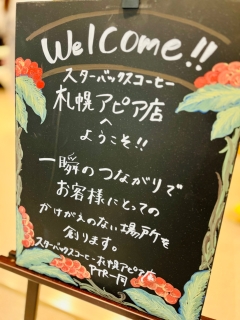 Welcome!!
スターバックスコーヒー
札幌アピア店
へ
ようこそ!!
一瞬のつながりで
お客様にとっての
かけがえのない場所を
創ります。
スターバックスコーヒー札幌アピア店
PTR一同